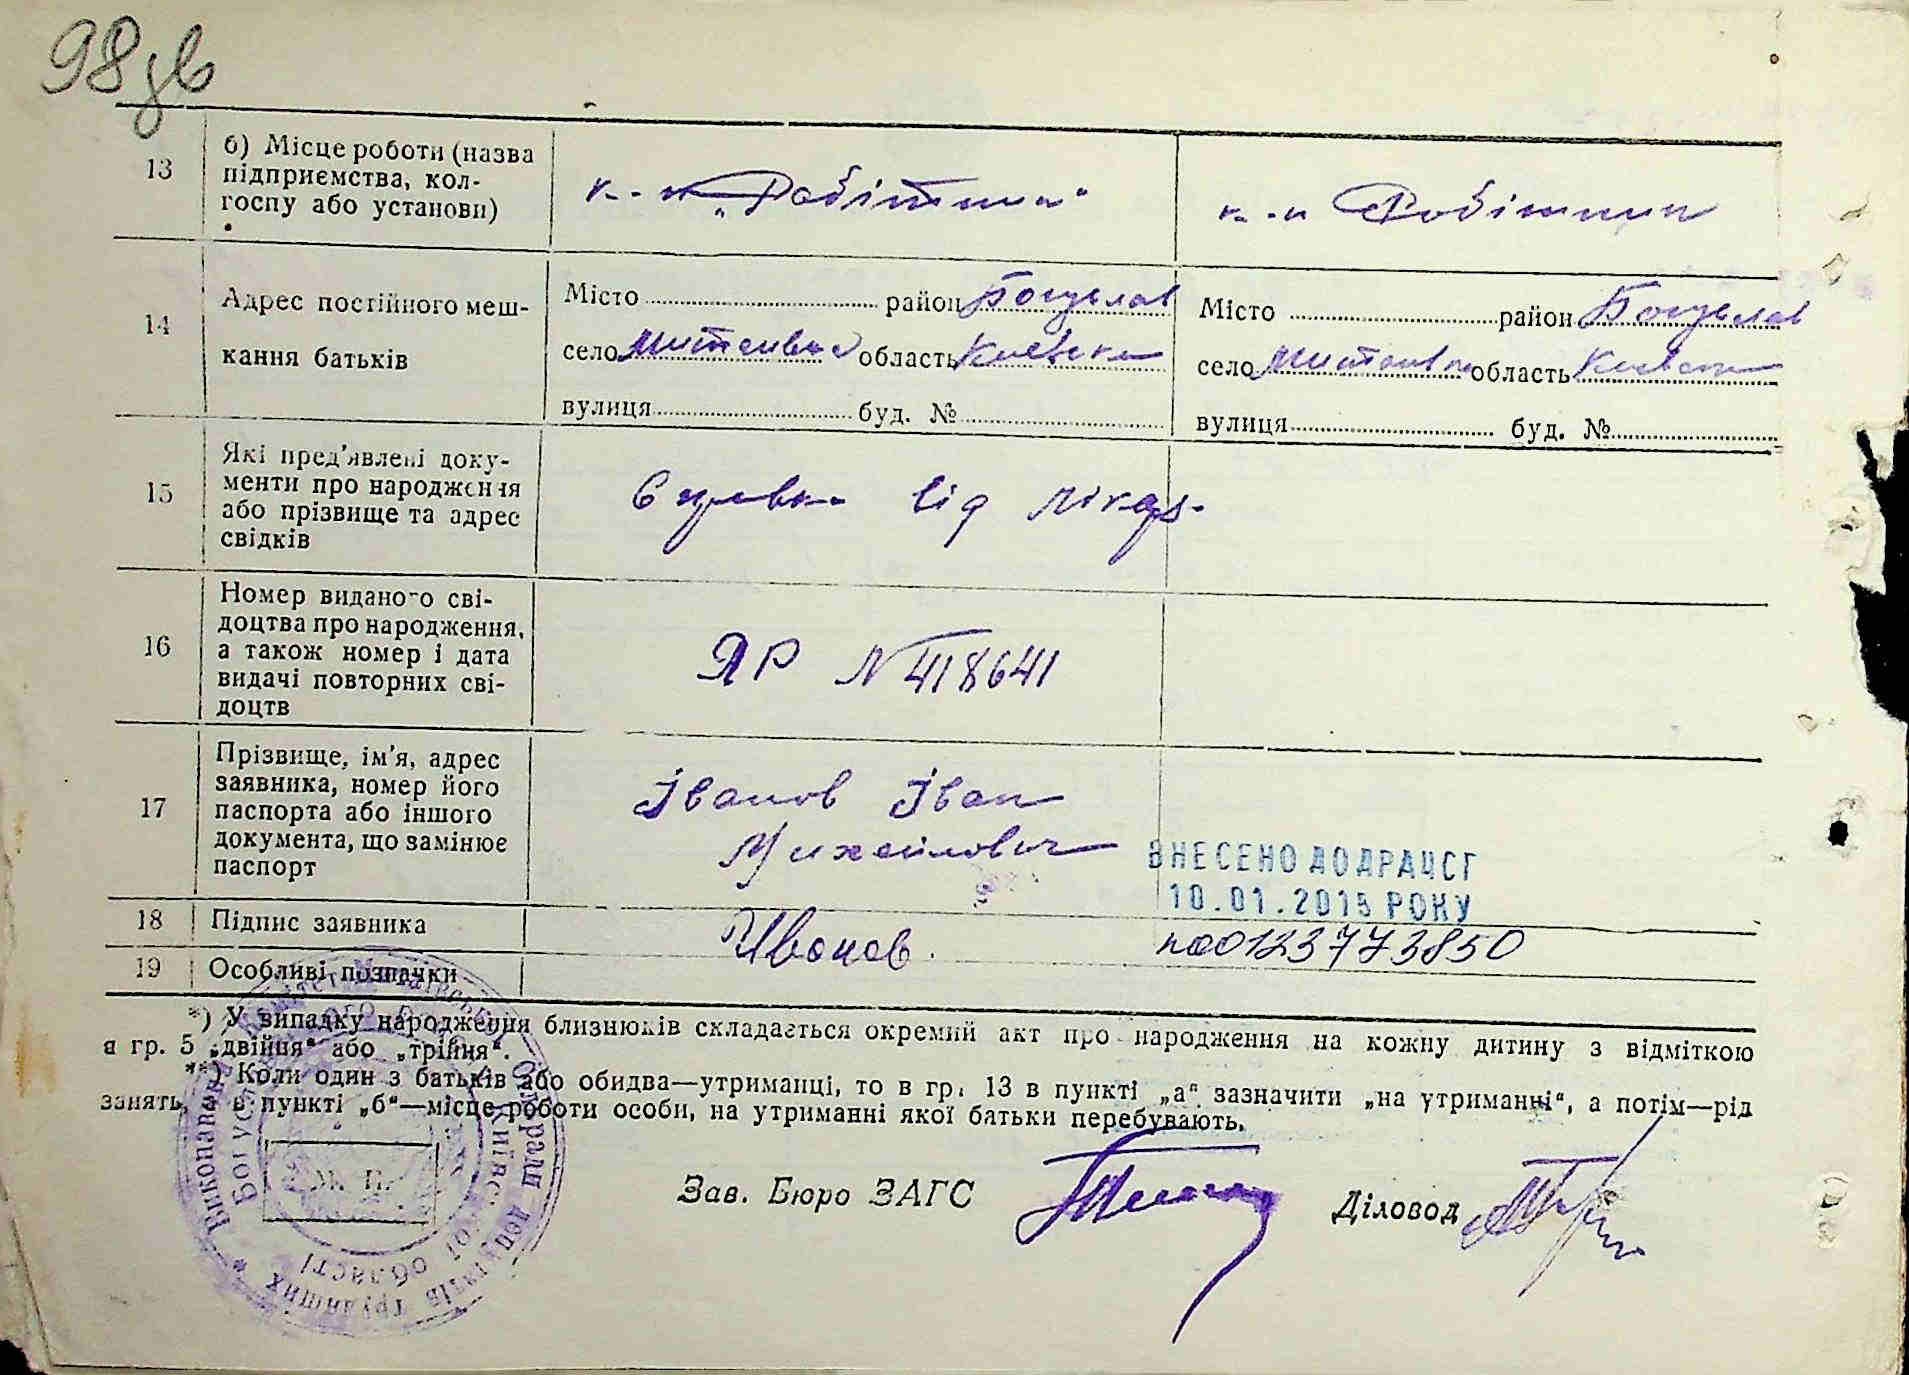 98 зв
13
б) Місце роботи (назва
підприємства, кол-
госпу або установи)
к-п „Робітник"
к-п Робітник
14
Адрес постійного меш-
кання батьків
Місто район Богуслав
село область Київська
вулиця буд. №
Місто район Богуслав
село область Київська
вулиця буд. №
15
Які пред'явлені доку-
менти про народження
або прізвище та адрес
свідків
Справка від лікаря
16
Номер виданого сві-
доцтва про народження,
а також номер і дата
видачі повторних сві-
доцтв
ЯР № 418641
17
Прізвище, ім'я, адрес
заявника, номер його
паспорта або іншого
документа, що замінює
паспорт
Іванов Іван
Михайлович
ВНЕСЕНО ДО ДРАЦСГ
10.01.2015 РОКУ
18
Підпис заявника
Иванов.
00123773850
19
Особливі позначки
*) У випадку народження близнюків складається окремий акт про народження на кожну дитину з відміткою
в гр. 5 „двійня" або „трійня".
**) Коли один з батьків або обидва—утриманці, то в гр. 13 в пункті „а" зазначити „на утриманні", а потім—рід
занять, а в пункті „б"—місце роботи особи, на утриманні якої батьки перебувають.
М. П.
Зав. Бюро ЗАГС
Діловод